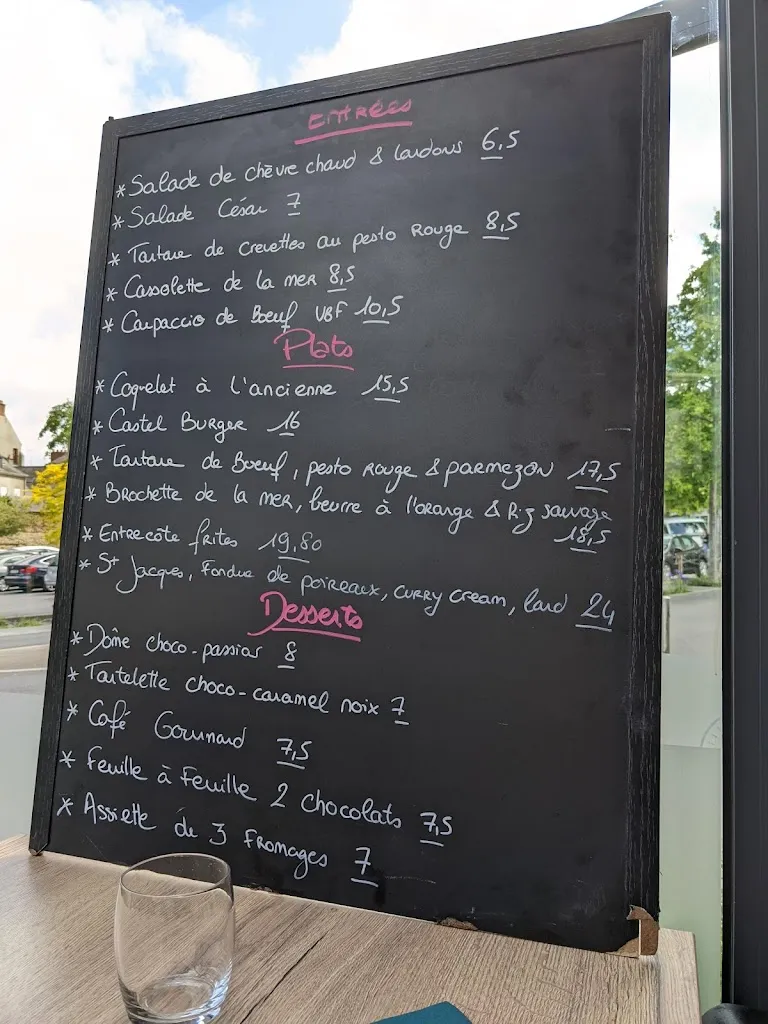 Entrées
* Salade de chèvre chaud & lardons 6,5
* Salade César 7
* Tartare de crevettes au pesto Rouge 8,5
* Cassolette de la mer 8,5
* Carpaccio de Boeuf VBF 10,5
Plats
* Coquelet à l'ancienne 15,5
* Castel Burger 16
* Tartare de Boeuf, pesto Rouge & parmezan 17,5
* Brochette de la mer, beurre à l'orange & Riz sauvage
18,5
* Entrecôte frites 19,80
* St Jacques, Fondue de poireaux, curry cream, lard 24
Desserts
* Dôme choco-passion 8
* Tartelette choco-caramel noix 7
* Café Gourmand 7,5
* Feuille à Feuille 2 chocolats 7,5
* Assiette de 3 Fromages 7